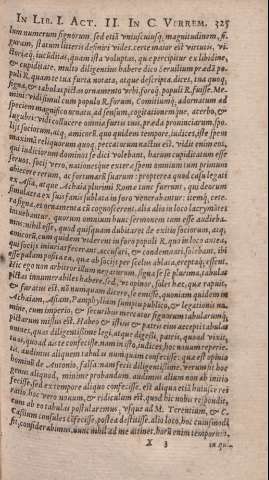 IN LIB. I. ACT. II. IN C. VERREM. 325
lum numerum signorum. sed etiã vniuscuiusq; magnitudinem, fi-
guram, statum litteris definiri vides. certe maior est virtutis, vi-
ctoriæq́; iucũditas, quam ista voluptas, quæ percipitur ex libidine,
& cupiditate. multo diligentius habere dico Seruilium prædã po-
puli R. quam te tua furta notata, atque descripta. dices, tua quoq;
signa, & tabulas pictas ornamento vrbi, foroq; populi R. fuisse. Me-
mini: vidi simul cum populo R. forum, Comitiumq; adornatum ad
speciem magnifico ornatu, ad sensum, cogitationemque, acerbo, &
lugubri: vidi collucere omnia furtis tuis, præda prouinciarum, spo-
lijs sociorum, atq; amicorũ. quo quidem tempore, iudices, iste spem
maximã reliquorum quoq; peccatorum nactus est. vidit enim eos,
qui iudiciorum dominos se dici volebant, harum cupiditatum esse
seruos. socij vero, nationesque exteræ spem omnium tum primum
abiecere rerum, ac fortunarũ suarum: propterea quod casu legati
ex Asia, atque Achaia plurimi Romæ tunc fuerunt, qui deorum
simulacra ex suis fanis sublata in foro venerabantur: itemq́; cete-
ra signa, et ornamenta cũ cognoscerent, alia alio in loco lacrymãtes
intuebantur. quorum omnium hunc sermonem tum esse audieba-
mus: nihil esse, quod quisquam dubitaret de exitio sociorum, atq;
amicorũ, cum quidem viderent in foro populi R. quo in loco antea,
qui socijs iniurias fecerant, accusari, & condemnari solebant, ibi
esse palam posita ea, quæ ab socijs per scelus ablata, ereptaq; essent.
Hic ego non arbitror illum negaturum, signa se se plurima, tabulas
pictas innumerabiles habere. sed, vt opinor, solet hæc, quæ rapuit,
& furatus est. nõ numquam dicere, se emisse. quoniam quidem in
Achaiam, Asiam, Pamphyliam sumptu publico, & legationis no-
mine, cum imperio, & securibus mercator signorum tabularumq;
pictarum missus est. Habeo & istius & patris eius accepti tabulas
omnes, quas diligentissime legi, atque digessi, patris, quoad vixit,
tuas, quoad ais te confecisse. nam in isto, iudices, hoc nouum reperie-
tis. audimus aliquem tabulas numquam confecisse: quæ est opinio
hominũ de Antonio, falsa. nam fecit diligentissime. verum sit hoc
genus aliquod, minime probandum. audimus alium non ab initio
fecisse, sed ex tempore aliquo confecisse. est aliqua etiã huiusce rei
ratio. hoc vero nouum, & ridiculum est, quod hic nobis respondit,
cum ab eo tabulas postularemus, vsque ad M. Terentium, & C.
Cassium consules confecisse. postea destitisse. alio loco, hoc cuiusmodi
sit, considerabimus. nunc nihil ad me attinet. horũ enim temporum,
X 3
in qui-